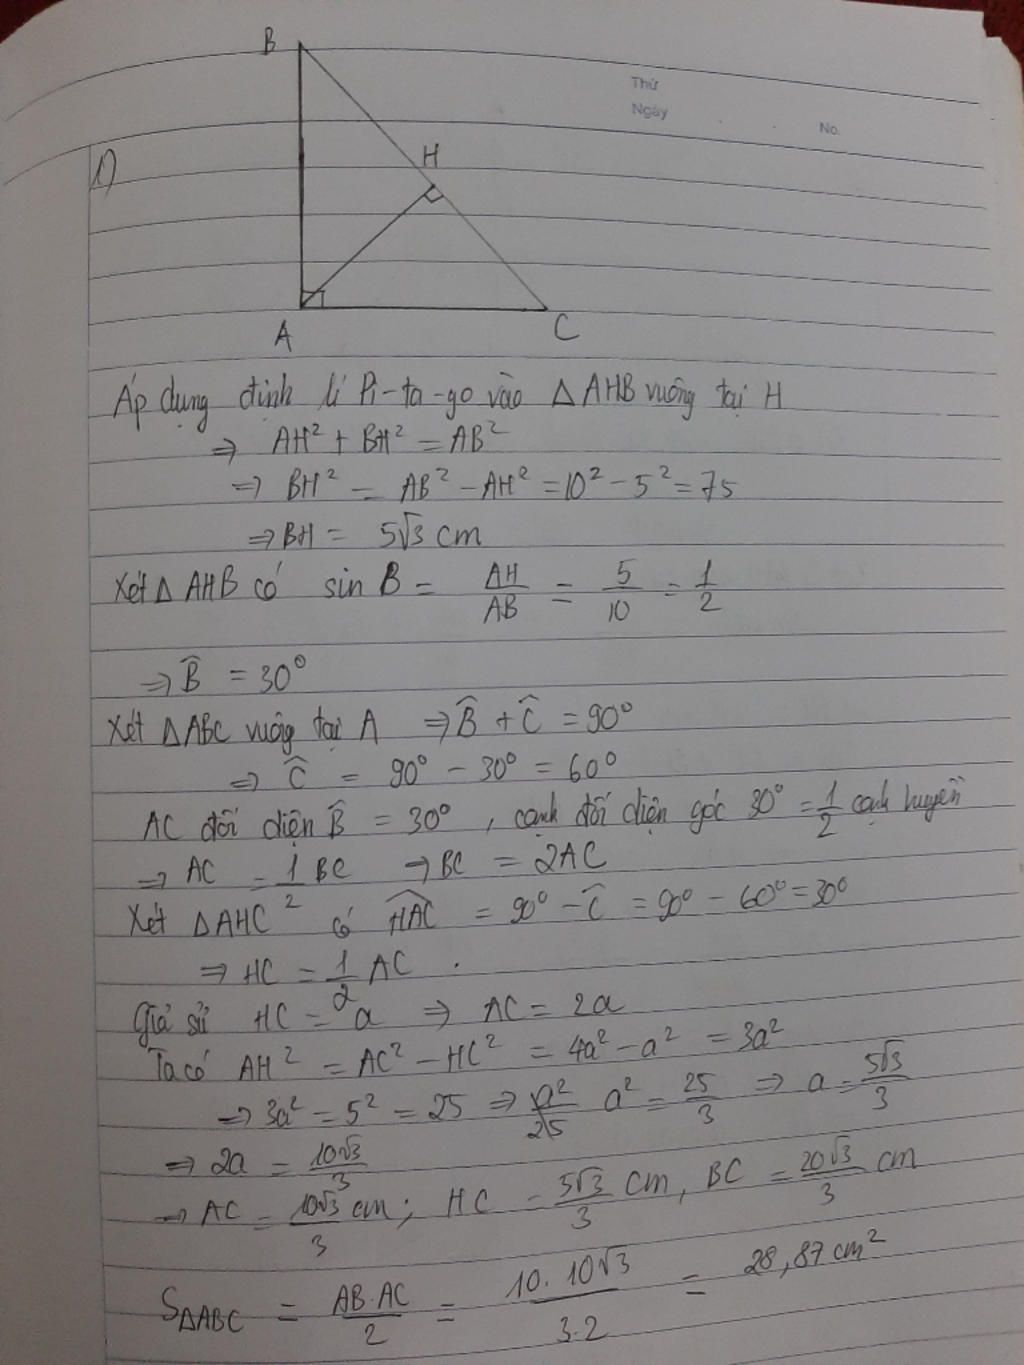 B
Thứ
Ngày
No.
1)
H
A
C
Áp dụng định lí Pi-ta-go vào △AHB vuông tại H
⇒ AH² + BH² = AB²
⇒ BH² = AB² - AH² = 10² - 5² = 75
⇒ BH = 5√3 cm
Xét △AHB có sin B = AH/AB = 5/10 = 1/2
⇒ B̂ = 30°
Xét △ABC vuông tại A ⇒ B̂ + Ĉ = 90°
⇒ Ĉ = 90° - 30° = 60°
AC đối diện B̂ = 30°, cạnh đối diện góc 30° = 1/2 cạnh huyền
⇒ AC = 1/2 BC ⇒ BC = 2AC
Xét △AHC có HAC = 90° - Ĉ = 90° - 60° = 30°
⇒ HC = 1/2 AC.
Giả sử HC = a ⇒ AC = 2a
Ta có AH² = AC² - HC² = 4a² - a² = 3a²
⇒ 3a² = 5² = 25 ⇒ a² = 25/3 ⇒ a = 5√3/3
⇒ 2a = 10√3/3
⇒ AC = 10√3/3 cm; HC = 5√3/3 cm, BC = 20√3/3 cm
S△ABC = AB.AC/2 = 10.10√3/3.2 = 28,87 cm²